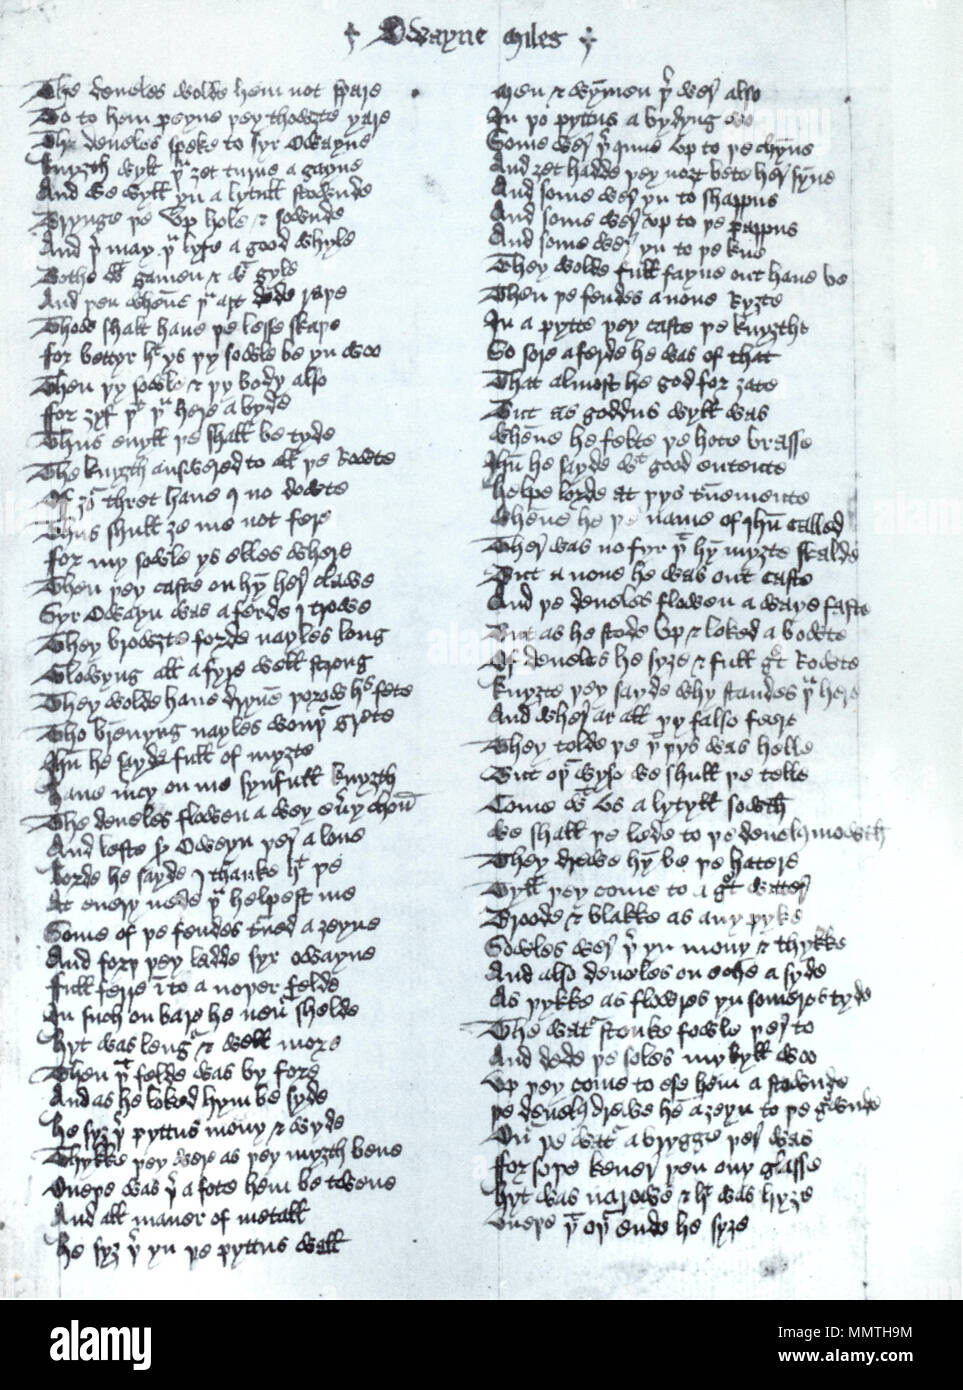 Owayne Miles
The deueles wolde hem not spare
To hem peyne þey thowȝte ȝare
The deueles speke to syr Owayne
Knyȝth wylt þu ȝet turne a gayne
And we wyll yn a lytull stownde
Brynge þe up hole & sownde
And þer may þu lyfe a good whyle
Bothe wt gamen & wt gyle
And þen whene þu art dede rape
Thow shalt haue þe lesse skape
for bettyr hyt ys þy sowle be yn woo
Then þy sowle & þy body also
for ȝyf þt þu here abyde
Thus euyll þe shall be tyde
The knyȝth answered to all þe Rowte
Of ȝor thret haue I no dowte
Thus shull ȝe me not fere
for my sowle ys elles where
Then þey caste on hym her clawe
Syr Owayn was a ferde I trowe
They browȝte forde nayles long
Glowyng all a fyre well strong
They wolde haue dryuen þorow hys fete
Tho brennyng nayles wonþer grete
Ihu he sayde full of myȝte
haue mcy on me synfull knyȝth
The deueles flowen a wey eury
And lefte syr Owayn þer a lone
lorde he sayde I thanke hyt þe
At euery nede þu helpest me
Some of þe fendes turned a ȝeyne
And forþ þey ladde syr owayne
full ferre into a noþer felde
In such on bare he neur shelde
hyt was lengur & well more
Then þt felde was by fore
And as he loked hym be syde
he syȝ þer pyttus mony & wyde
Thykke þey were as þey myȝth bene
Oneþe was þer a fote hem be twene
And all maner of metall
he syȝ þer yn þe pyttus wall
Men & wymen þer wer also
In þo pyttus a bydyng wo
Some wer þer inne up to þe chynne
And ȝet hadde þey noȝt bete her synne
And some wer yn to shappus
And some wer up to þe pappus
And some wer yn to þe kne
They wolde full fayne out haue be
Then þe fendes a none Ryȝte
In a pytte þey caste þe knyȝthe
So sore aferde he was of that
That almost he god for ȝate
But as goddus wyll was
whene he felte þe hote brasse
Ihu he sayde wt good entente
helpe lorde at þys turnemente
whene he þe name of Ihu called
Ther was no fyr þt hym myȝte skalde
But a none he was out caste
And þe deueles flowen a waye faste
But as he stode up & loked a bowte
Of deueles he syȝe & full gt Rowte
knyȝte þey sayde why standes þu here
And wher ar all þy falso feere
They tolde þe þt þys was helle
But oþur wyse we shull þe telle
Come wt us a lytyll sowth
we shall þe lede to þe deuelus mowth
They drewe hym be þe hatere
Tyll þey come to a gt water
Broode & blakke as any pyke
Sowles wer þer yn mony & thykke
And also deueles on eche a syde
As þykke as flowres yn someres tyde
The water stonke fowle þer to
And dede þe soles mykyll woo
Up þey come to ese hem a stownde
þe deuelus drewe hem aȝeyn to þe grownde
Our þe watur a brygge þer was
for soþe kener þen ony glasse
hyt was narowe & hyt was hyȝe
Oneþe þt oþur ende he syȝe
alamy
alamy stock photo
MMTH9M
www.alamy.com